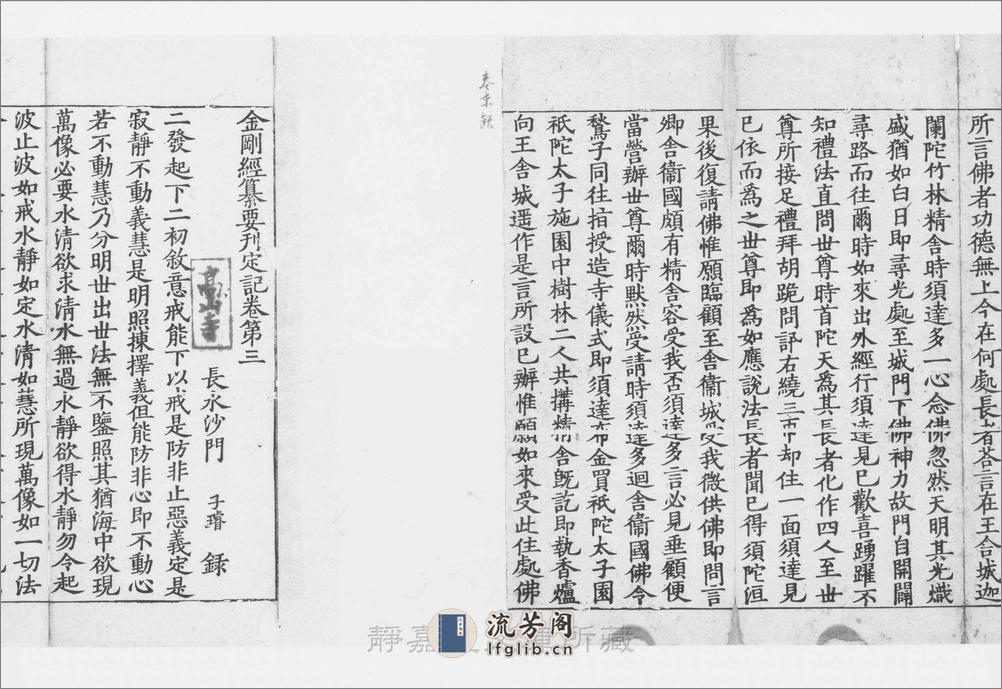 所言佛者功德無上今在何處長者荅言在王舍城迦
闌陀竹林精舍時須達多一心念佛忽然天明其光熾
盛猶如白日即尋光處至城門下佛神力故門自開闢
尋路而往爾時如來出外經行須達見已歡喜踴躍不
知禮法直問世尊時首陀天為其長者化作四人至世
尊所接足禮拜胡跪問訊右繞三帀却住一面須達見
已依而為之世尊即為如應說法長者聞已得須陀洹
果後復請佛惟願臨顧至舍衞城受我微供佛即問言
卿舍衞國頗有精舍容受我否須達多言必見垂顧便
當營辦世尊爾時默然受請時須達多迴舍衞國佛令
鶖子同往指授造寺儀式即須達布金買祇陀太子園
祇陀太子施園中樹林二人共搆精舍旣訖即執香爐
向王舍城遥作是言所設已辦惟願如來受此住處佛
金剛經纂要刊定記卷第三
長水沙門 子璿 録
高山寺
二發起下二初敘意戒能下以戒是防非止惡義定是
寂靜不動義慧是明照揀擇義但能防非心即不動心
若不動慧乃分明世出世法無不鑒照其猶海中欲現
萬像必要水清欲求清水無過水靜欲得水靜勿令起
波止波如戒水靜如定水清如慧所現萬像如一切法
靜嘉堂文庫所藏
流芳阁
lfglib.cn